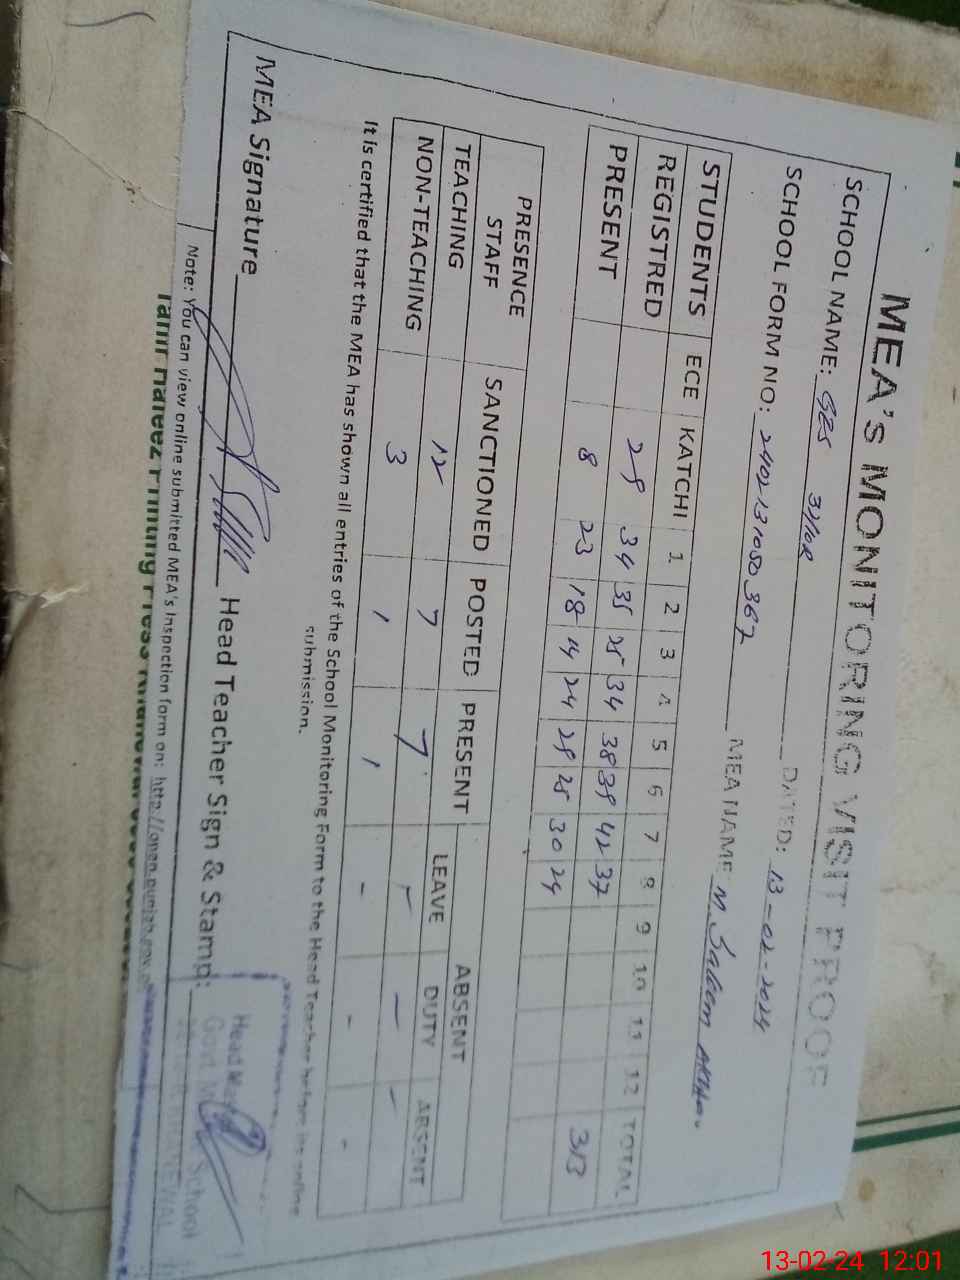 MEA'S MONITORING VISIT PROOF
SCHOOL NAME: GES 37/10R DATED: 13-02-2024
SCHOOL FORM NO: MEA NAME M. Saleem
STUDENTS ECE KATCHI 1 2 3 4 5 6 7 8 9 10 11 12 TOTAL
REGISTRED 34 35 34 38 42 37 313
PRESENT 8 23 18 14 24 30 24
PRESENCE STAFF SANCTIONED POSTED PRESENT ABSENT
LEAVE DUTY ABSENT
TEACHING 12 7 7 - - -
NON-TEACHING 3 1 1 - - -
It is certified that the MEA has shown all entries of the School Monitoring Form to the Head Teacher before its online
submission.
MEA Signature Head Teacher Sign & Stamp:
Head
Govt. School
KHANEWAL
Note: You can view online submitted MEA's Inspection form on: http://open.punjab.gov.pk
Tahir Hafeez Printing Press Khanewal
13-02-24 12:01